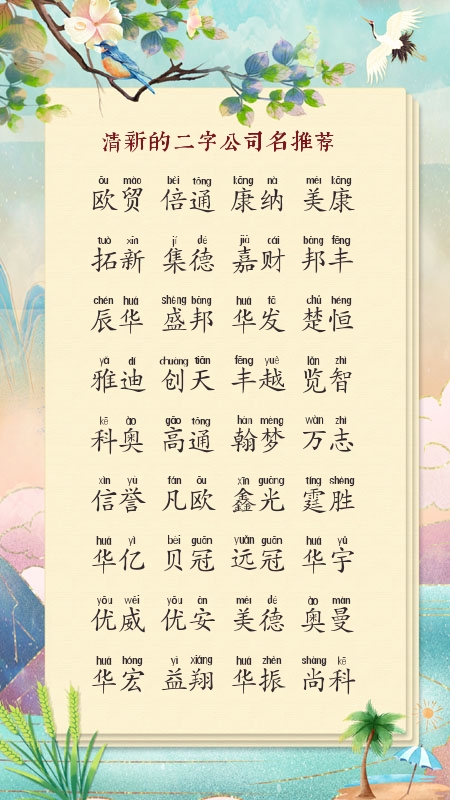 清新的二字公司名推荐
ōu mào bèi tōng kāng nà měi kāng
欧贸 倍通 康纳 美康
tuò xīn jí dé jiā cái bāng fēng
拓新 集德 嘉财 邦丰
chén huá shèng bāng huá fā chǔ héng
辰华 盛邦 华发 楚恒
yǎ dí chuàng tiān fēng yuè lǎn zhì
雅迪 创天 丰越 览智
kē ào gāo tōng hàn mèng wàn zhì
科奥 高通 翰梦 万志
xìn yù fán ōu xīn guāng tíng shèng
信誉 凡欧 鑫光 霆胜
huá yì bèi guān yuǎn guān huá yǔ
华亿 贝冠 远冠 华宇
yōu wēi yōu ān měi dé ào màn
优威 优安 美德 奥曼
huá hóng yì xiáng huá zhèn shàng kē
华宏 益翔 华振 尚科